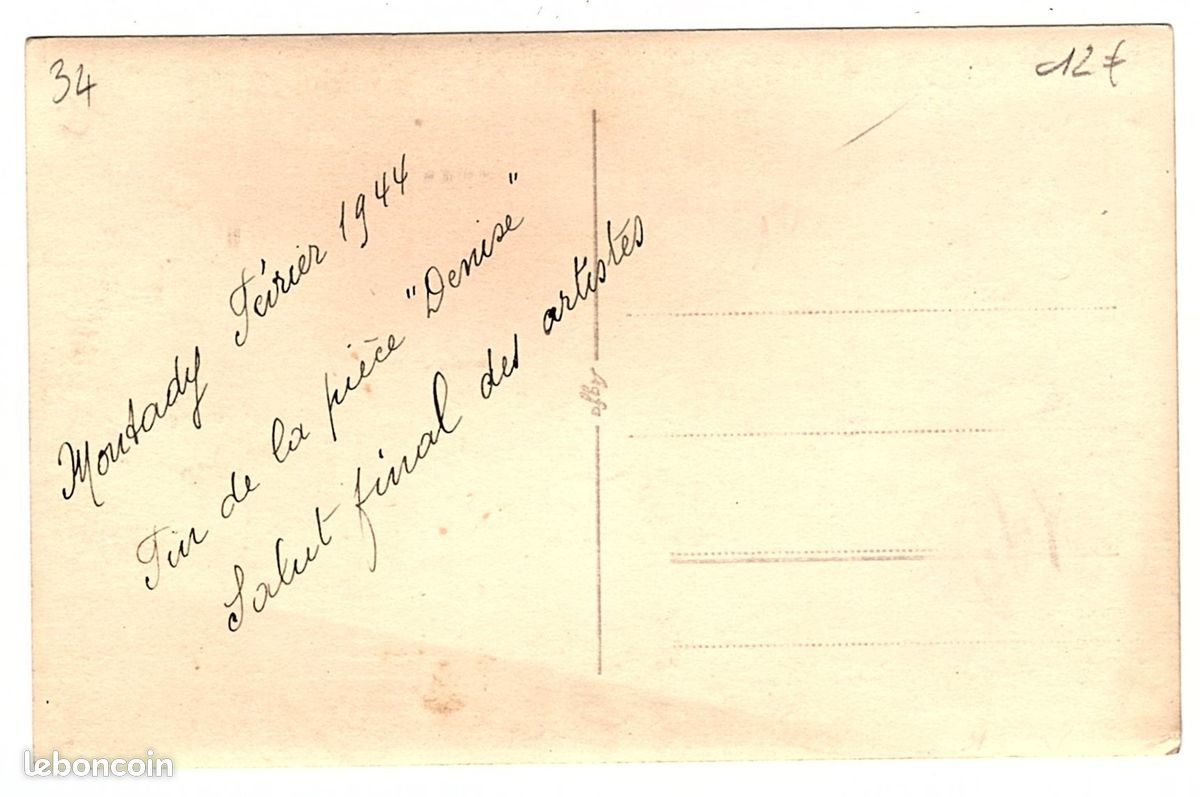 34
12 €
Montady Février 1944
Fin de la pièce "Denise"
Salut final des artistes
leboncoin